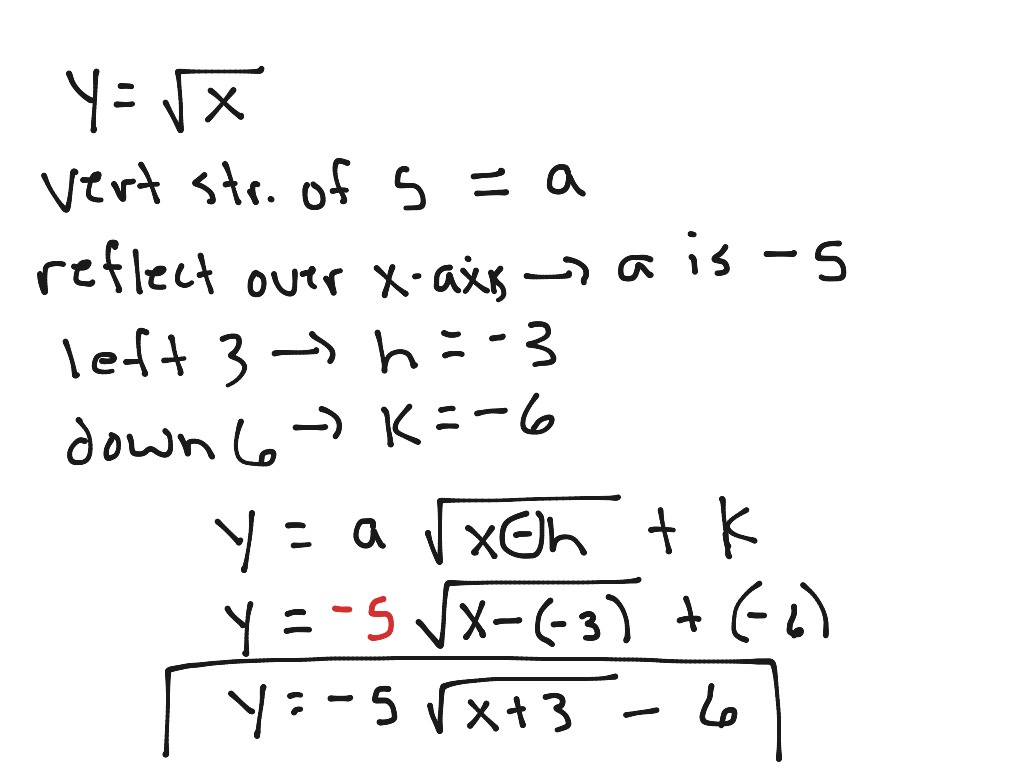 y = √x
vert str. of 5 = a
reflect over x-axis → a is -5
left 3 → h = -3
down 6 → k = -6
y = a √x⊖h + k
y = -5 √x-(-3) + (-6)
y = -5 √x+3 - 6